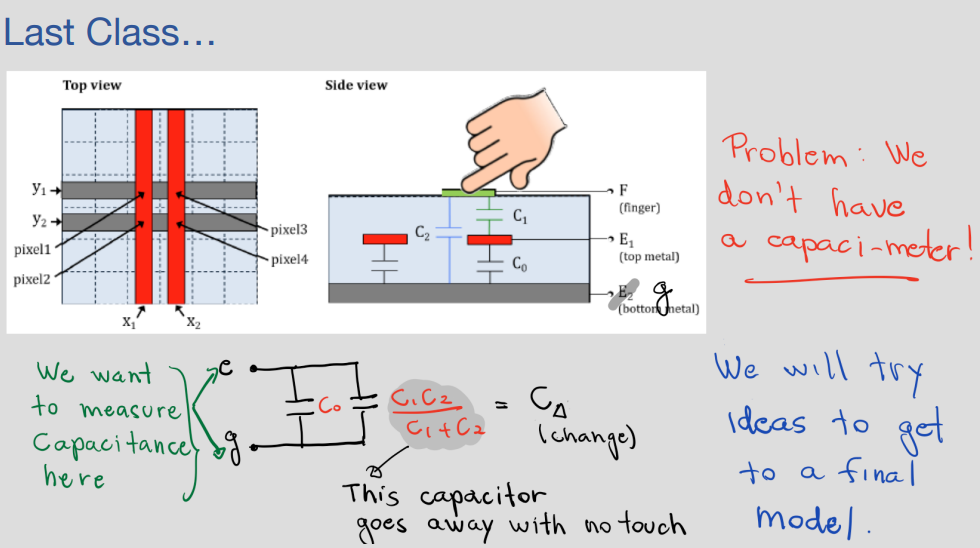 Last Class...
Top view
Side view
y₁
y₂
pixel1
pixel2
pixel3
pixel4
x₁
x₂
C₂
C₁
C₀
F
(finger)
E₁
(top metal)
E₂ g
(bottom metal)
Problem: We
don't have
a capaci-meter!
We want
to measure
Capacitance
here
e
g
C₀
C₁C₂
C₁+C₂
= C∆
(change)
This capacitor
goes away with no touch
We will try
ideas to get
to a final
model.